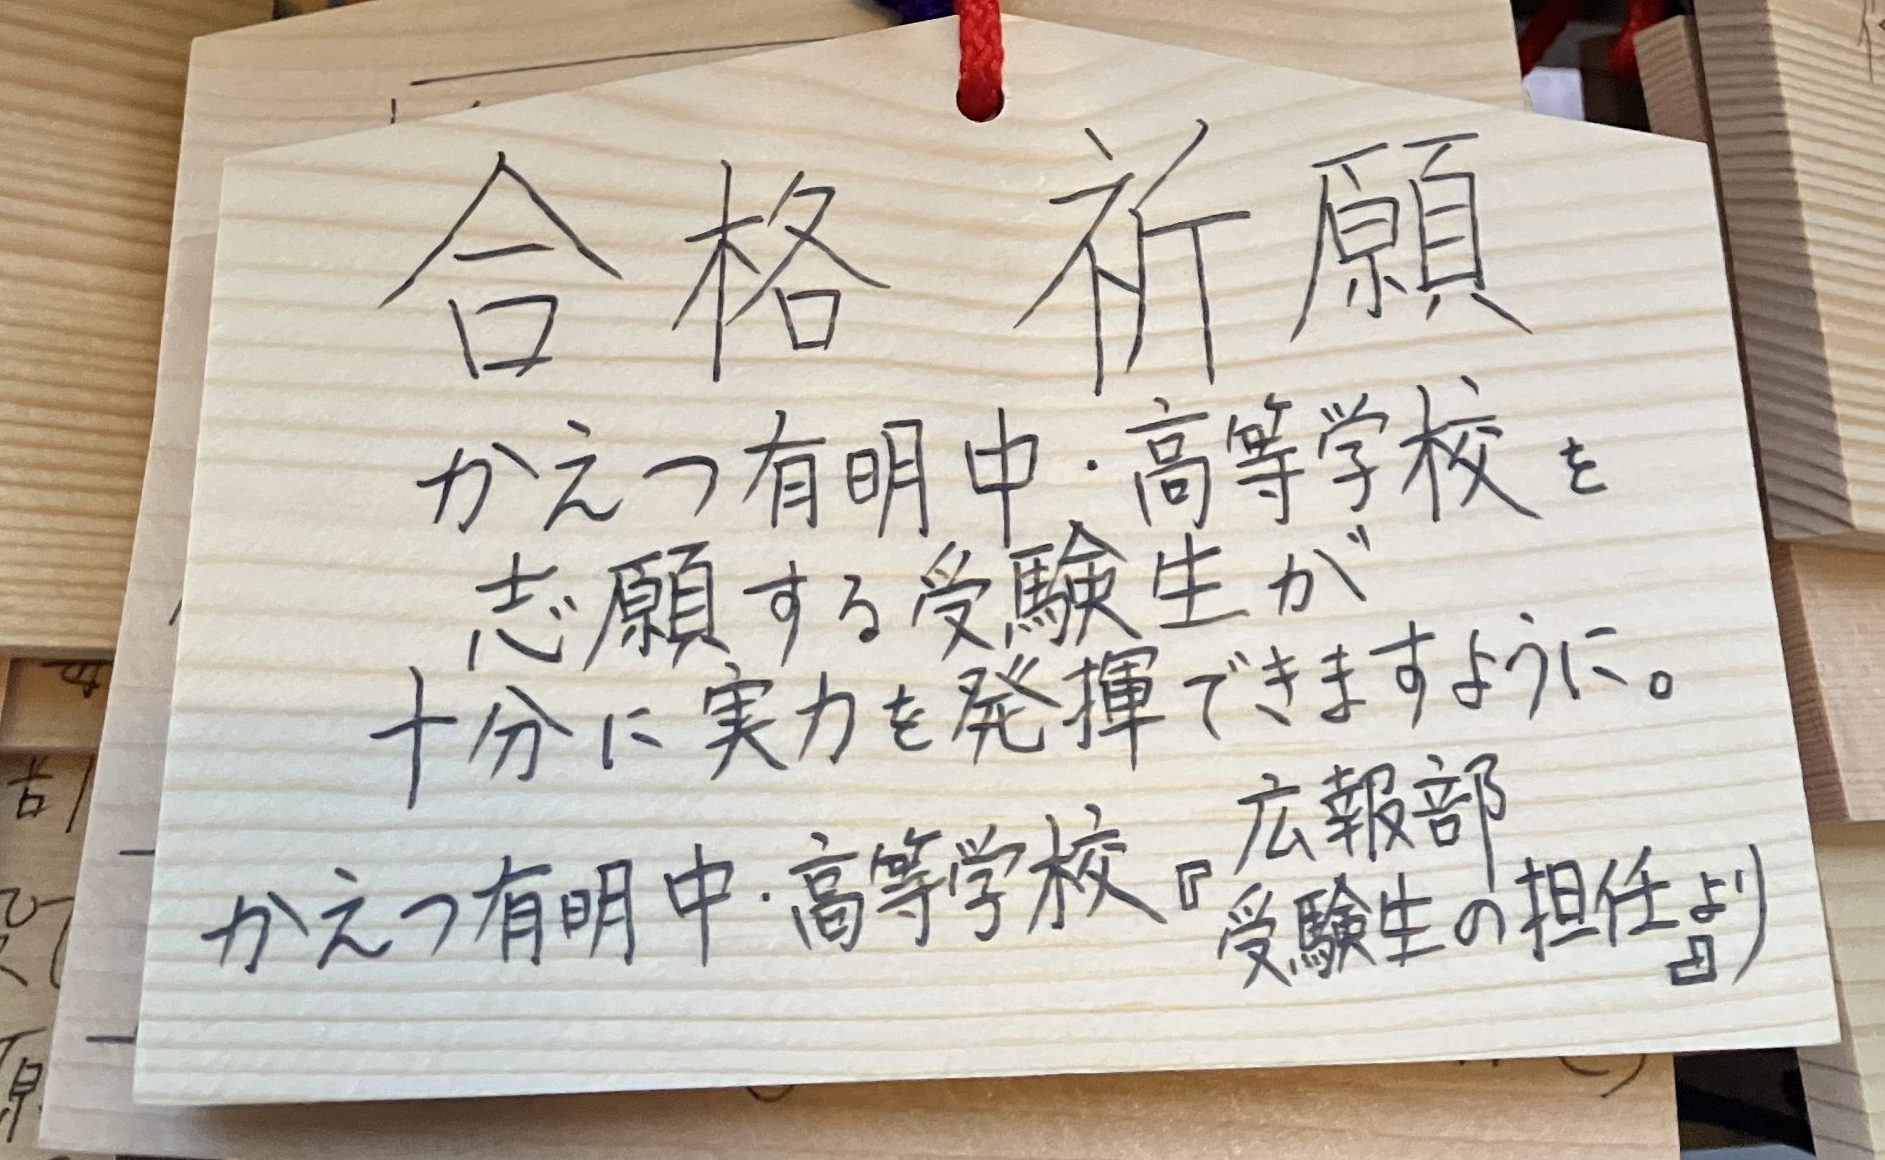 合格 祈願
かえつ有明中・高等学校を
志願する受験生が
十分に実力を発揮できますように。
かえつ有明中・高等学校『広報部
受験生の担任』より